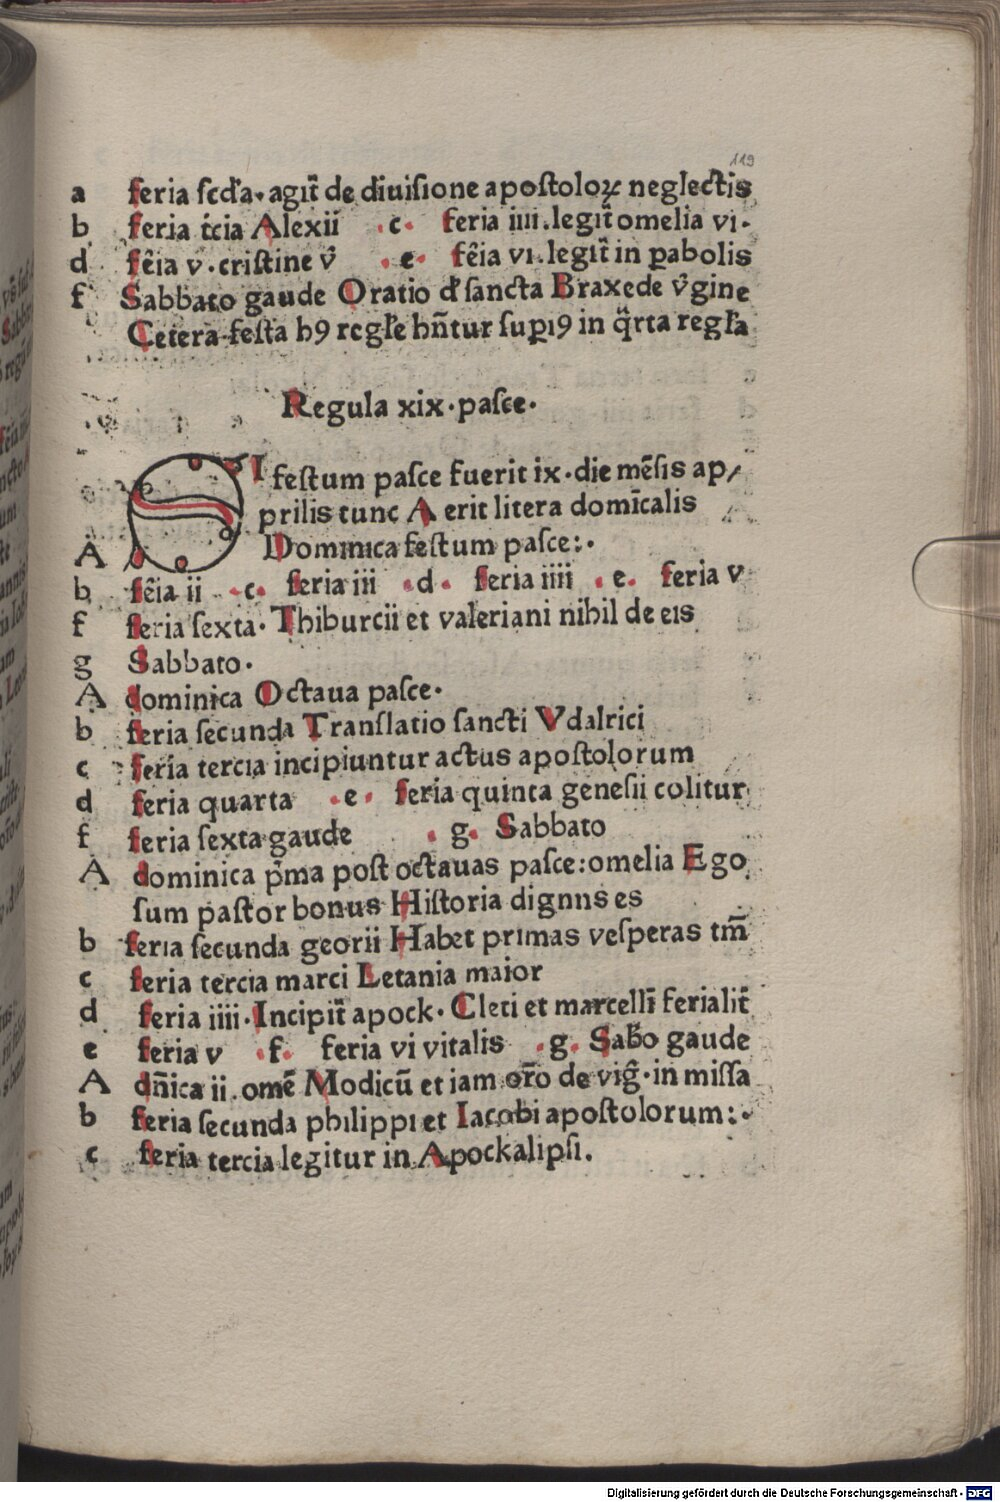 119
a feria scd'a. agit̃ de diuisione apostoloꝝ neglectis
b feria t̃cia Alexii .c. feria iiii.legit̃ omelia vi-
d fẽia v.cristine v̾ .e. fẽia vi.legit̃ in ꝑabolis
f Sabbato gaude Oratio d̾ sancta Braxede v̾gine
Cetera festa h9 regl'e hñtur supi9 in q̃rta regl'a
Regula xix.pasce.
SI festum pasce fuerit ix.die mẽsis ap/
prilis tunc A erit litera domĩcalis
A Dominica festum pasce:.
b fẽia ii .c. feria iii .d. feria iiii .e. feria v
f feria sexta. Thiburcii et valeriani nihil de eis
g Sabbato.
A dominica Octaua pasce.
b feria secunda Translatio sancti Vdalrici
c feria tercia incipiuntur actus apostolorum
d feria quarta .e. feria quinta genesii colitur
f feria sexta gaude .g. Sabbato
A dominica p̃ma post octauas pasce:omelia Ego
sum pastor bonus Historia dignns es
b feria secunda georii Habet primas vesperas tm̃
c feria tercia marci Letania maior
d feria iiii.Incipit̃ apock. Cleti et marcellĩ ferialit̃
e feria v .f. feria vi vitalis .g. Sab̃o gaude
A dñica ii.omẽ Modicũ et iam or̃o de vig̃.in missa
b feria secunda philippi et Iacobi apostolorum:.
c feria tercia legitur in Apockalipsi.
Digitalisierung gefördert durch die Deutsche Forschungsgemeinschaft - DFG